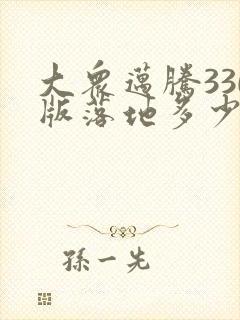 大衆邁騰330
版落地多少
孫一先